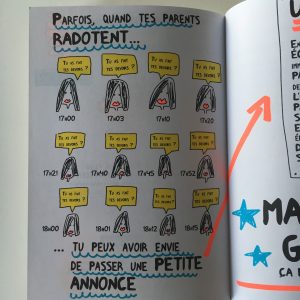 PARFOIS, QUAND TES PARENTS
RADOTENT...
TU AS FAIT TES DEVOIRS ?
TU AS FAIT TES DEVOIRS ?
TU AS FAIT TES DEVOIRS ?
TU AS FAIT TES DEVOIRS ?
17h00 17h03 17h10 17h20
TU AS FAIT TES DEVOIRS ?
TU AS FAIT TES DEVOIRS ?
TU AS FAIT TES DEVOIRS ?
TU AS FAIT TES DEVOIRS ?
17h21 17h40 17h45 17h52
TU AS FAIT TES DEVOIRS ?
TU AS FAIT TES DEVOIRS ?
TU AS FAIT TES DEVOIRS ?
TU AS FAIT TES DEVOIRS ?
18h00 18h01 18h12 18h15
... TU PEUX AVOIR ENVIE
DE PASSER UNE PETITE
ANNONCE
MA
G
ÇA